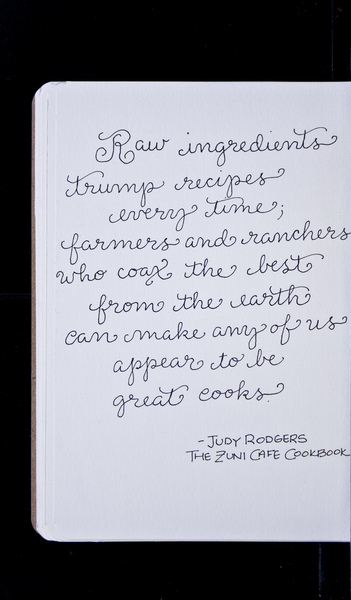 Raw ingredients
trump recipes
every time;
farmers and ranchers
who coax the best
from the earth
can make any of us
appear to be
great cooks.
- JUDY RODGERS
THE ZUNI CAFE COOKBOOK